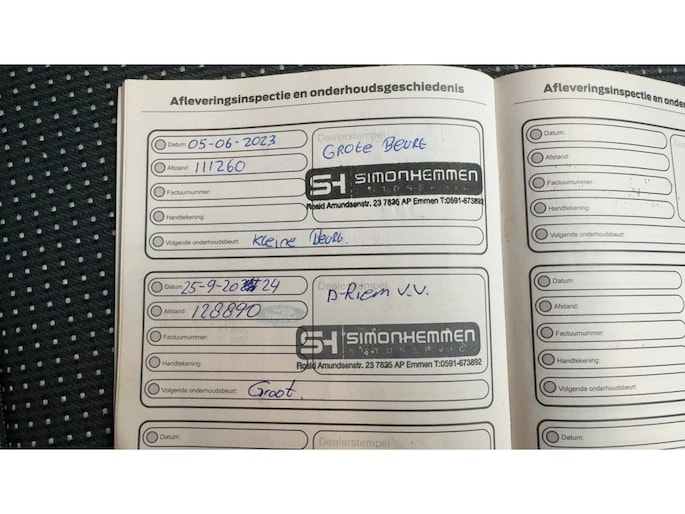 Afleveringsinspectie en onderhoudsgeschiedenis
Datum: 05-06-2023
Dealerstempel
GROTE BEURT
Afstand: 111260
SH SIMONHEMMEN
AUTOSERVICE
Roald Amundsenstr. 23 7825 AP Emmen T:0591-673892
Factuurnummer:
Handtekening:
Volgende onderhoudsbeurt: Kleine Beurt.
Datum: 25-9-2024
D-Riem V.V.
Afstand: 128890
SH SIMONHEMMEN
AUTOSERVICE
Factuurnummer:
Roald Amundsenstr. 23 7825 AP Emmen T:0591-673892
Handtekening:
Volgende onderhoudsbeurt: Groot.
Datum:
Dealerstempel
Afleveringsinspectie en
Datum:
Afstand:
Factuurnummer:
Handtekening:
Volgende onderhoudsbeurt:
Datum:
Afstand:
Factuurnummer:
Handtekening:
Volgende onderhoudsbeurt:
Datum: